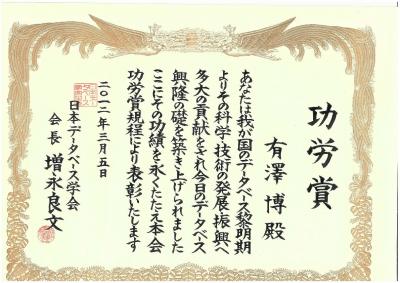 功労賞
有澤博殿
あなたは我が国のデータベース黎明期
よりその科学技術の発展振興へ
多大の貢献をされ今日のデータベース
興隆の礎を築き上げられました
ここにその功績を永くたたえ本会
功労賞規程により表彰いたします
二〇一二年三月五日
日本データベース学会
会長 増永良文